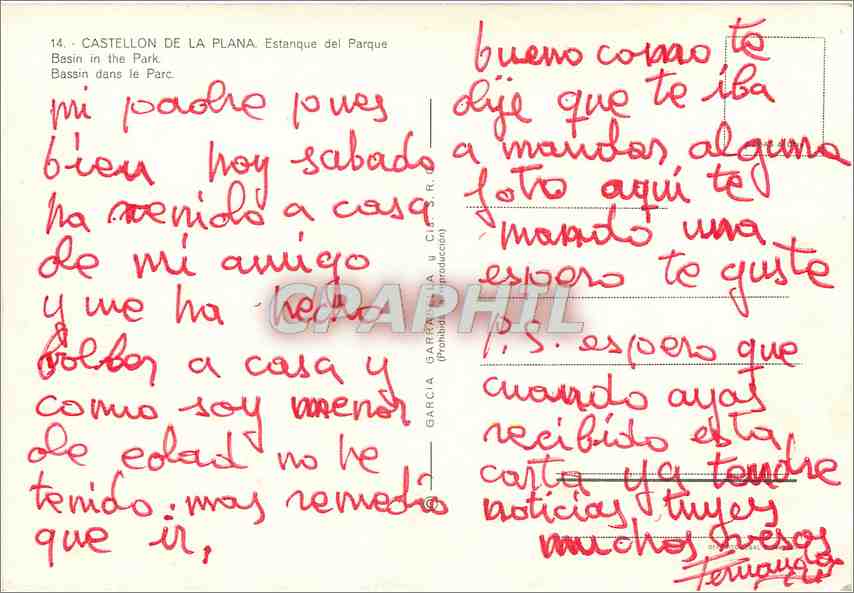 14. - CASTELLON DE LA PLANA. Estanque del Parque
Basin in the Park.
Bassin dans le Parc.
mi padre pues
bien hoy sabado
ha venido a casa
de mi amigo
y me ha hecho
bolber a casa y
como soy menor
de edad no he
tenido mas remedio
que ir,
GARCIA GARRABELLA y Cía. S. R. C.
(Prohibida la reproducción)
bueno como te
dije que te iba
a mandar alguna
foto aquí te
mando una
espero te guste
p.s. espero que
cuando ayas
recibido esta
carta ya tendre
noticias tuyas
muchos vesos
Fernando
CPAPHIL